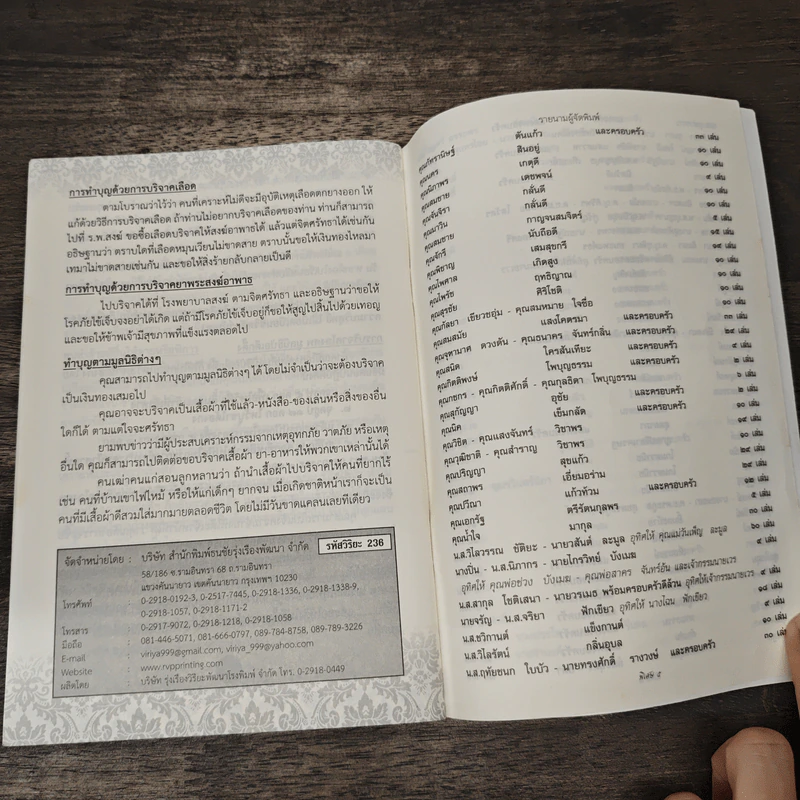 การทำบุญด้วยการบริจาคเลือด
ตามโบราณว่าไว้ว่า คนที่เคราะห์ไม่ดีจะมีอุบัติเหตุเลือดตกยางออก ให้
แก้ด้วยวิธีการบริจาคเลือด ถ้าท่านไม่อยากบริจาคเลือดของท่าน ท่านก็สามารถ
ไปที่ ร.พ.สงฆ์ ขอซื้อเลือดบริจาคให้สงฆ์อาพาธได้ แล้วแต่จิตศรัทธาได้เช่นกัน
อธิษฐานว่า ตราบใดที่เลือดหมุนเวียนไม่ขาดสาย ตราบนั้นขอให้เงินทองไหลมา
เทมาไม่ขาดสายเช่นกัน และขอให้สิ่งร้ายกลับกลายเป็นดี
การทำบุญด้วยการบริจาคยาพระสงฆ์อาพาธ
ไปบริจาคได้ที่ โรงพยาบาลสงฆ์ ตามจิตศรัทธา และอธิษฐานว่าขอให้
โรคภัยไข้เจ็บจงอย่าได้เกิด แต่ถ้ามีโรคภัยไข้เจ็บอยู่ก็ขอให้สูญไปสิ้นไปด้วยเทอญ
และขอให้ข้าพเจ้ามีสุขภาพที่แข็งแรงตลอดไป
ทำบุญตามมูลนิธิต่างๆ
คุณสามารถไปทำบุญตามมูลนิธิต่างๆ ได้ โดยไม่จำเป็นว่าจะต้องบริจาค
เป็นเงินทองเสมอไป
คุณอาจจะบริจาคเป็นเสื้อผ้าที่ใช้แล้ว-หนังสือ-ของเล่นหรือสิ่งของอื่น
ใดก็ได้ ตามแต่ใจจะศรัทธา
ยามพบข่าวว่ามีผู้ประสบเคราะห์กรรมจากเหตุอุทกภัย วาตภัย หรือเหตุ
อื่นใด คุณก็สามารถไปติดต่อขอบริจาคเสื้อผ้า ยา-อาหารให้พวกเขาเหล่านั้นได้
คนเฒ่าคนแก่สอนลูกหลานว่า ถ้านำเสื้อผ้าไปบริจาคให้คนที่ยากไร้
เช่น คนที่บ้านเขาไฟไหม้ หรือให้แก่เด็กๆ ยากจน เมื่อเกิดชาติหน้าเราก็จะเป็น
คนที่มีเสื้อผ้าดีสวมใส่มากมายตลอดชีวิต โดยไม่มีวันขาดแคลนเลยทีเดียว
จัดจำหน่ายโดย : บริษัท สำนักพิมพ์ธนชัยรุ่งเรืองพัฒนา จำกัด รหัสวิริยะ 236
58/186 ซ.รามอินทรา 68 ถ.รามอินทรา
แขวงคันนายาว เขตคันนายาว กรุงเทพฯ 10230
โทรศัพท์ : 0-2918-0192-3, 0-2517-7445, 0-2918-1336, 0-2918-1338-9,
0-2918-1057, 0-2918-1171-2
โทรสาร : 0-2917-9072, 0-2918-1218, 0-2918-1058
มือถือ : 081-446-5071, 081-666-0797, 089-784-8758, 089-789-3226
E-mail : viriya999@gmail.com, viriya_999@yahoo.com
Website : www.rvpprinting.com
ผลิตโดย : บริษัท รุ่งเรืองวิริยะพัฒนาโรงพิมพ์ จำกัด โทร. 0-2918-0449
รายนามผู้จัดพิมพ์
คุณภัทรานิษฐ์ ตันแก้ว และครอบครัว ๓๓ เล่ม
คุณนคร สินอยู่ ๑๐ เล่ม
คุณนิภาพร เกตุดี ๑๐ เล่ม
คุณสมชาย เดชพจน์ ๙ เล่ม
คุณจันจิรา กลั่นดี ๑๐ เล่ม
คุณมาวิน กลั่นดี ๑๐ เล่ม
คุณสมชาย กาญจนสมจิตร์ ๕ เล่ม
คุณจักรี นับถือดี ๑๕ เล่ม
คุณพิชาญ เสมสุขกรี ๑๙ เล่ม
คุณไพศาล เกิดสูง ๑๐ เล่ม
คุณไพรัช ฤทธิญาณ ๑๐ เล่ม
คุณสุรชัย ศิริโชติ ๑๐ เล่ม
คุณกัลยา เขียวชอุ่ม - คุณสมหมาย ใจซื่อ ๑๐ เล่ม
คุณสมสมัย แสงโคตรมา และครอบครัว ๓๐ เล่ม
คุณจุฑามาศ ดวงดัน - คุณธนาคร จันทร์กลิ่น และครอบครัว ๒๙ เล่ม
คุณสนิต ไตรสันเทียะ และครอบครัว ๙ เล่ม
คุณกิตติพงษ์ โพบุญธรรม และครอบครัว ๒ เล่ม
คุณกชกร - คุณกิตติศักดิ์ - คุณกุลธิดา โพบุญธรรม ๖ เล่ม
คุณสุกัญญา อุชัย และครอบครัว ๒ เล่ม
คุณนิค เข็มกลัด และครอบครัว ๑๐ เล่ม
คุณวิชิต - คุณแสงจันทร์ วิชาพร ๑๐ เล่ม
คุณวุฒิชาติ - คุณสำราญ วิชาพร ๑๙ เล่ม
คุณปริญญา สุขแก้ว ๒๙ เล่ม
คุณสถาพร เอี่ยมอร่าม ๒๙ เล่ม
คุณปวีณา แก้วท้วม และครอบครัว ๑๐ เล่ม
คุณเอกรัฐ ตรีรัตนกุลพร ๕ เล่ม
คุณน้ำใจ นากุล ๓๐ เล่ม
น.ส.วิไลวรรณ ชัติยะ - นายวสันต์ ละมูล อุทิศให้ คุณแม่วันเพ็ญ ละมูล ๖๐ เล่ม
นางปิ่น - น.ส.นิภากร - นายไกรวิทย์ บังเมฆ ๙ เล่ม
อุทิศให้ คุณพ่อช่วง บังเมฆ - คุณพ่อสาคร จันทร์อ้น และเจ้ากรรมนายเวร
น.ส.สากุล โชติเสนา - นายวรเมธ พร้อมครอบครัวดีล้วน อุทิศให้เจ้ากรรมนายเวร ๙ เล่ม
นายจรัญ - น.ส.จริยา ฟักเขียว อุทิศให้ นางโฉน ฟักเขียว ๑๘ เล่ม
น.ส.ชวิกานต์ แข็งกานต์ ๙ เล่ม
น.ส.วิไลรัตน์ กลิ่นอุบล ๑๐ เล่ม
น.ส.ฤทัยชนก ใบบัว - นายทรงศักดิ์ รางวงษ์ และครอบครัว ๓๐ เล่ม
พิเศษ ๕